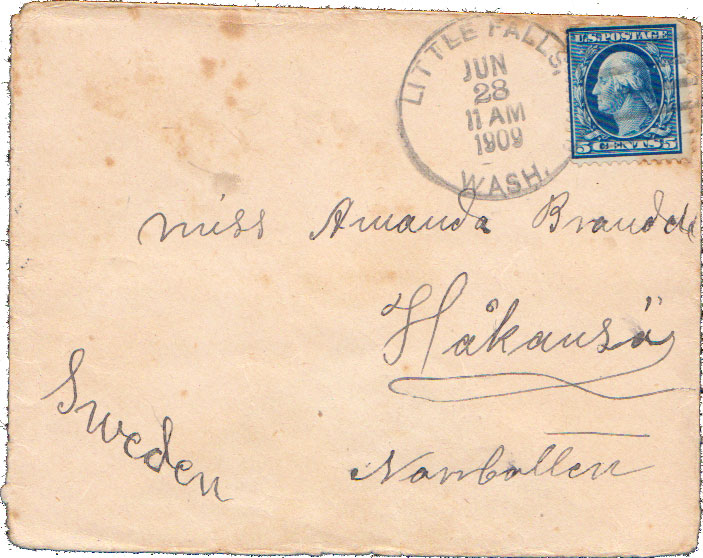 LITTLE FALLS,
JUN
28
11 AM
1909
WASH.
U.S. POSTAGE
5 CENTS 5
Miss Amanda
Håkansö
Sweden